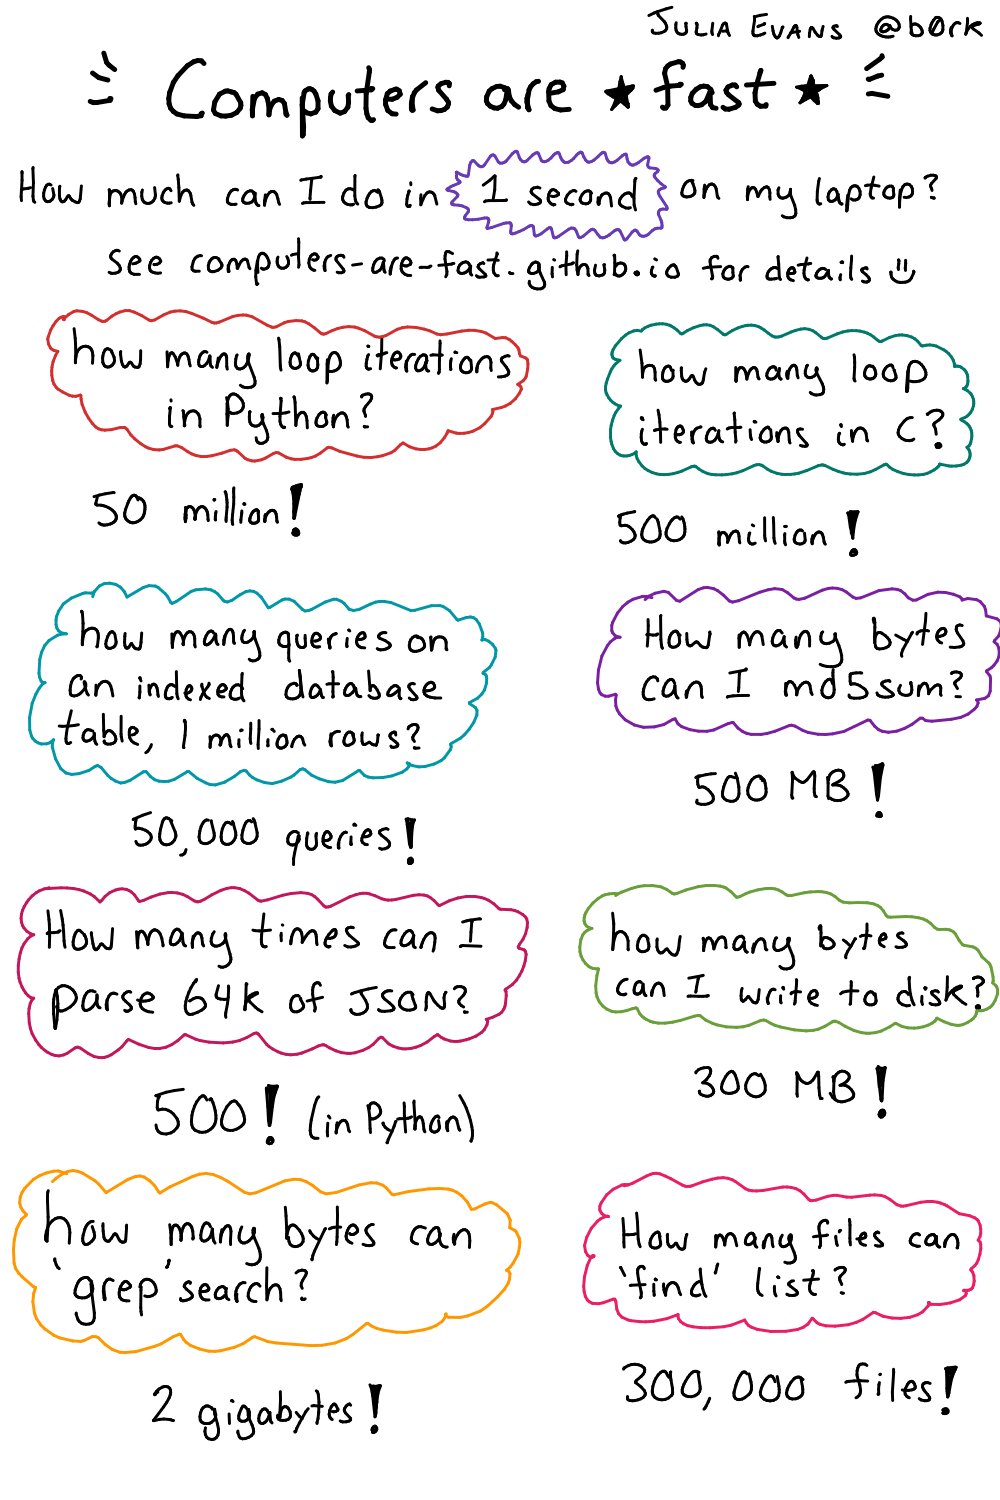 JULIA EVANS @b0rk
Computers are ★ fast ★
How much can I do in 1 second on my laptop?
see computers-are-fast.github.io for details
how many loop iterations
in Python?
50 million!
how many loop
iterations in C?
500 million!
how many queries on
an indexed database
table, 1 million rows?
50,000 queries!
How many bytes
can I md5sum?
500 MB!
How many times can I
parse 64k of JSON?
500! (in Python)
how many bytes
can I write to disk?
300 MB!
how many bytes can
'grep' search?
2 gigabytes!
How many files can
'find' list?
300,000 files!